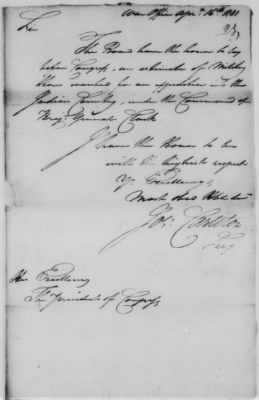 War Office April 16th 1781
Sir
The Board have the honor to lay
before Congress, an estimate of Military
Stores wanted for an expedition into the
Indian Country, under the Command of
Brigr General Clark
I have the Honor to be
with the highest respect
Yr Excellency's
Most Obed Hble Servt
Jos: Carleton
Secy
His Excellency
The President of Congress